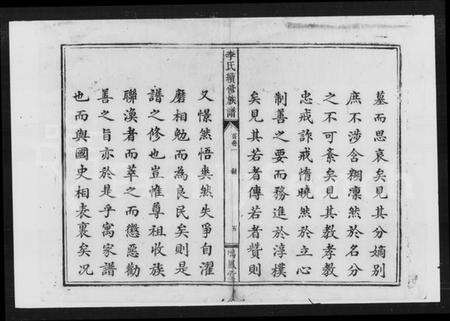 墓而思哀矣見其分嫡別
庶不涉含糊凜然於名分
之不可紊矣見其教孝教
忠戒詐戒惰曉然於立心
制善之要而務進於淳樸
矣見其若者傳若者贊則
李氏續修族譜
首卷一
五
又憬然悟奐然失爭自濯
磨相勉而為良民矣則是
譜之修也豈惟尊祖收族
聯渙者而萃之而懲惡勸
善之旨亦於是乎寓家譜
也而與國史相表裏矣況